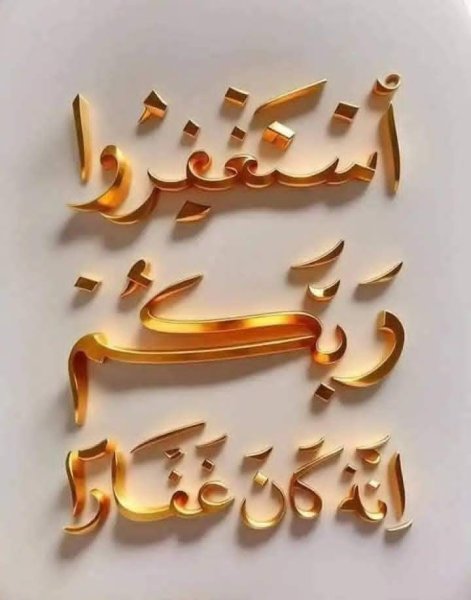 أستغفروا
ربكم
إنه كان غفارا